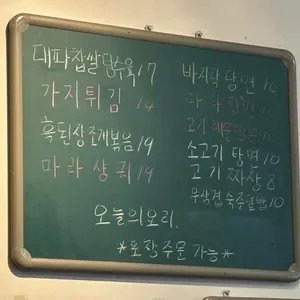 대파찹쌀탕수육 17
가지튀김 14
흑된장조개볶음 19
마라샹궈 19
바지락탕면 10
10
고기 10
소고기탕면 10
고기짜장 8
우삼겹숙주덮밥 10
오늘의요리.
*포장주문가능*